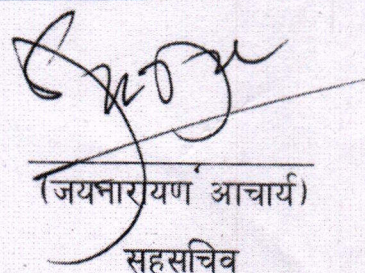 (जयनारायण आचार्य)
सहसचिव